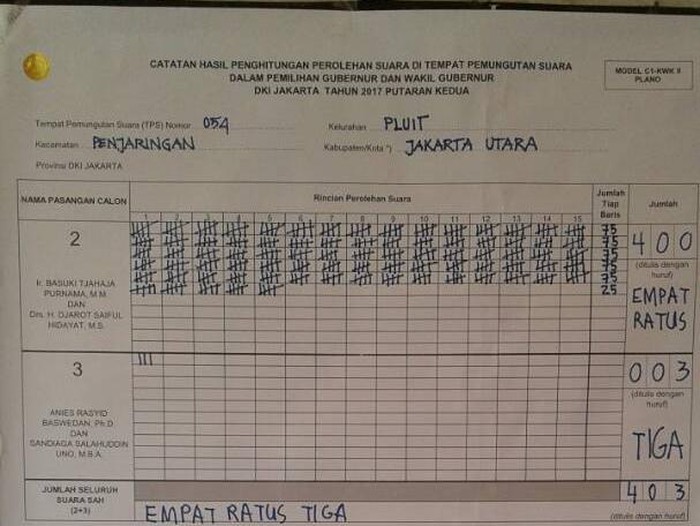 CATATAN HASIL PENGHITUNGAN PEROLEHAN SUARA DI TEMPAT PEMUNGUTAN SUARA
DALAM PEMILIHAN GUBERNUR DAN WAKIL GUBERNUR
DKI JAKARTA TAHUN 2017 PUTARAN KEDUA
MODEL C1-KWK
PLANO
Tempat Pemungutan Suara (TPS) Nomor 054
Kelurahan PLUIT
Kecamatan PENJARINGAN
Kabupaten/Kota *) JAKARTA UTARA
Provinsi DKI JAKARTA
NAMA PASANGAN CALON
Rincian Perolehan Suara
Jumlah Tiap Baris
Jumlah
1 2 3 4 5 6 7 8 9 10 11 12 13 14 15
2
Ir. BASUKI TJAHAJA
PURNAMA, M.M
DAN
Drs. H. DJAROT SAIFUL
HIDAYAT, M.S.
75
75
75
25
400
(ditulis dengan
huruf)
EMPAT
RATUS
3
ANIES RASYID
BASWEDAN, Ph.D
DAN
SANDIAGA SALAHUDDIN
UNO, M.B.A.
III
003
(ditulis dengan
huruf)
TIGA
JUMLAH SELURUH
SUARA SAH
(2+3)
EMPAT RATUS TIGA
403
(ditulis dengan huruf)